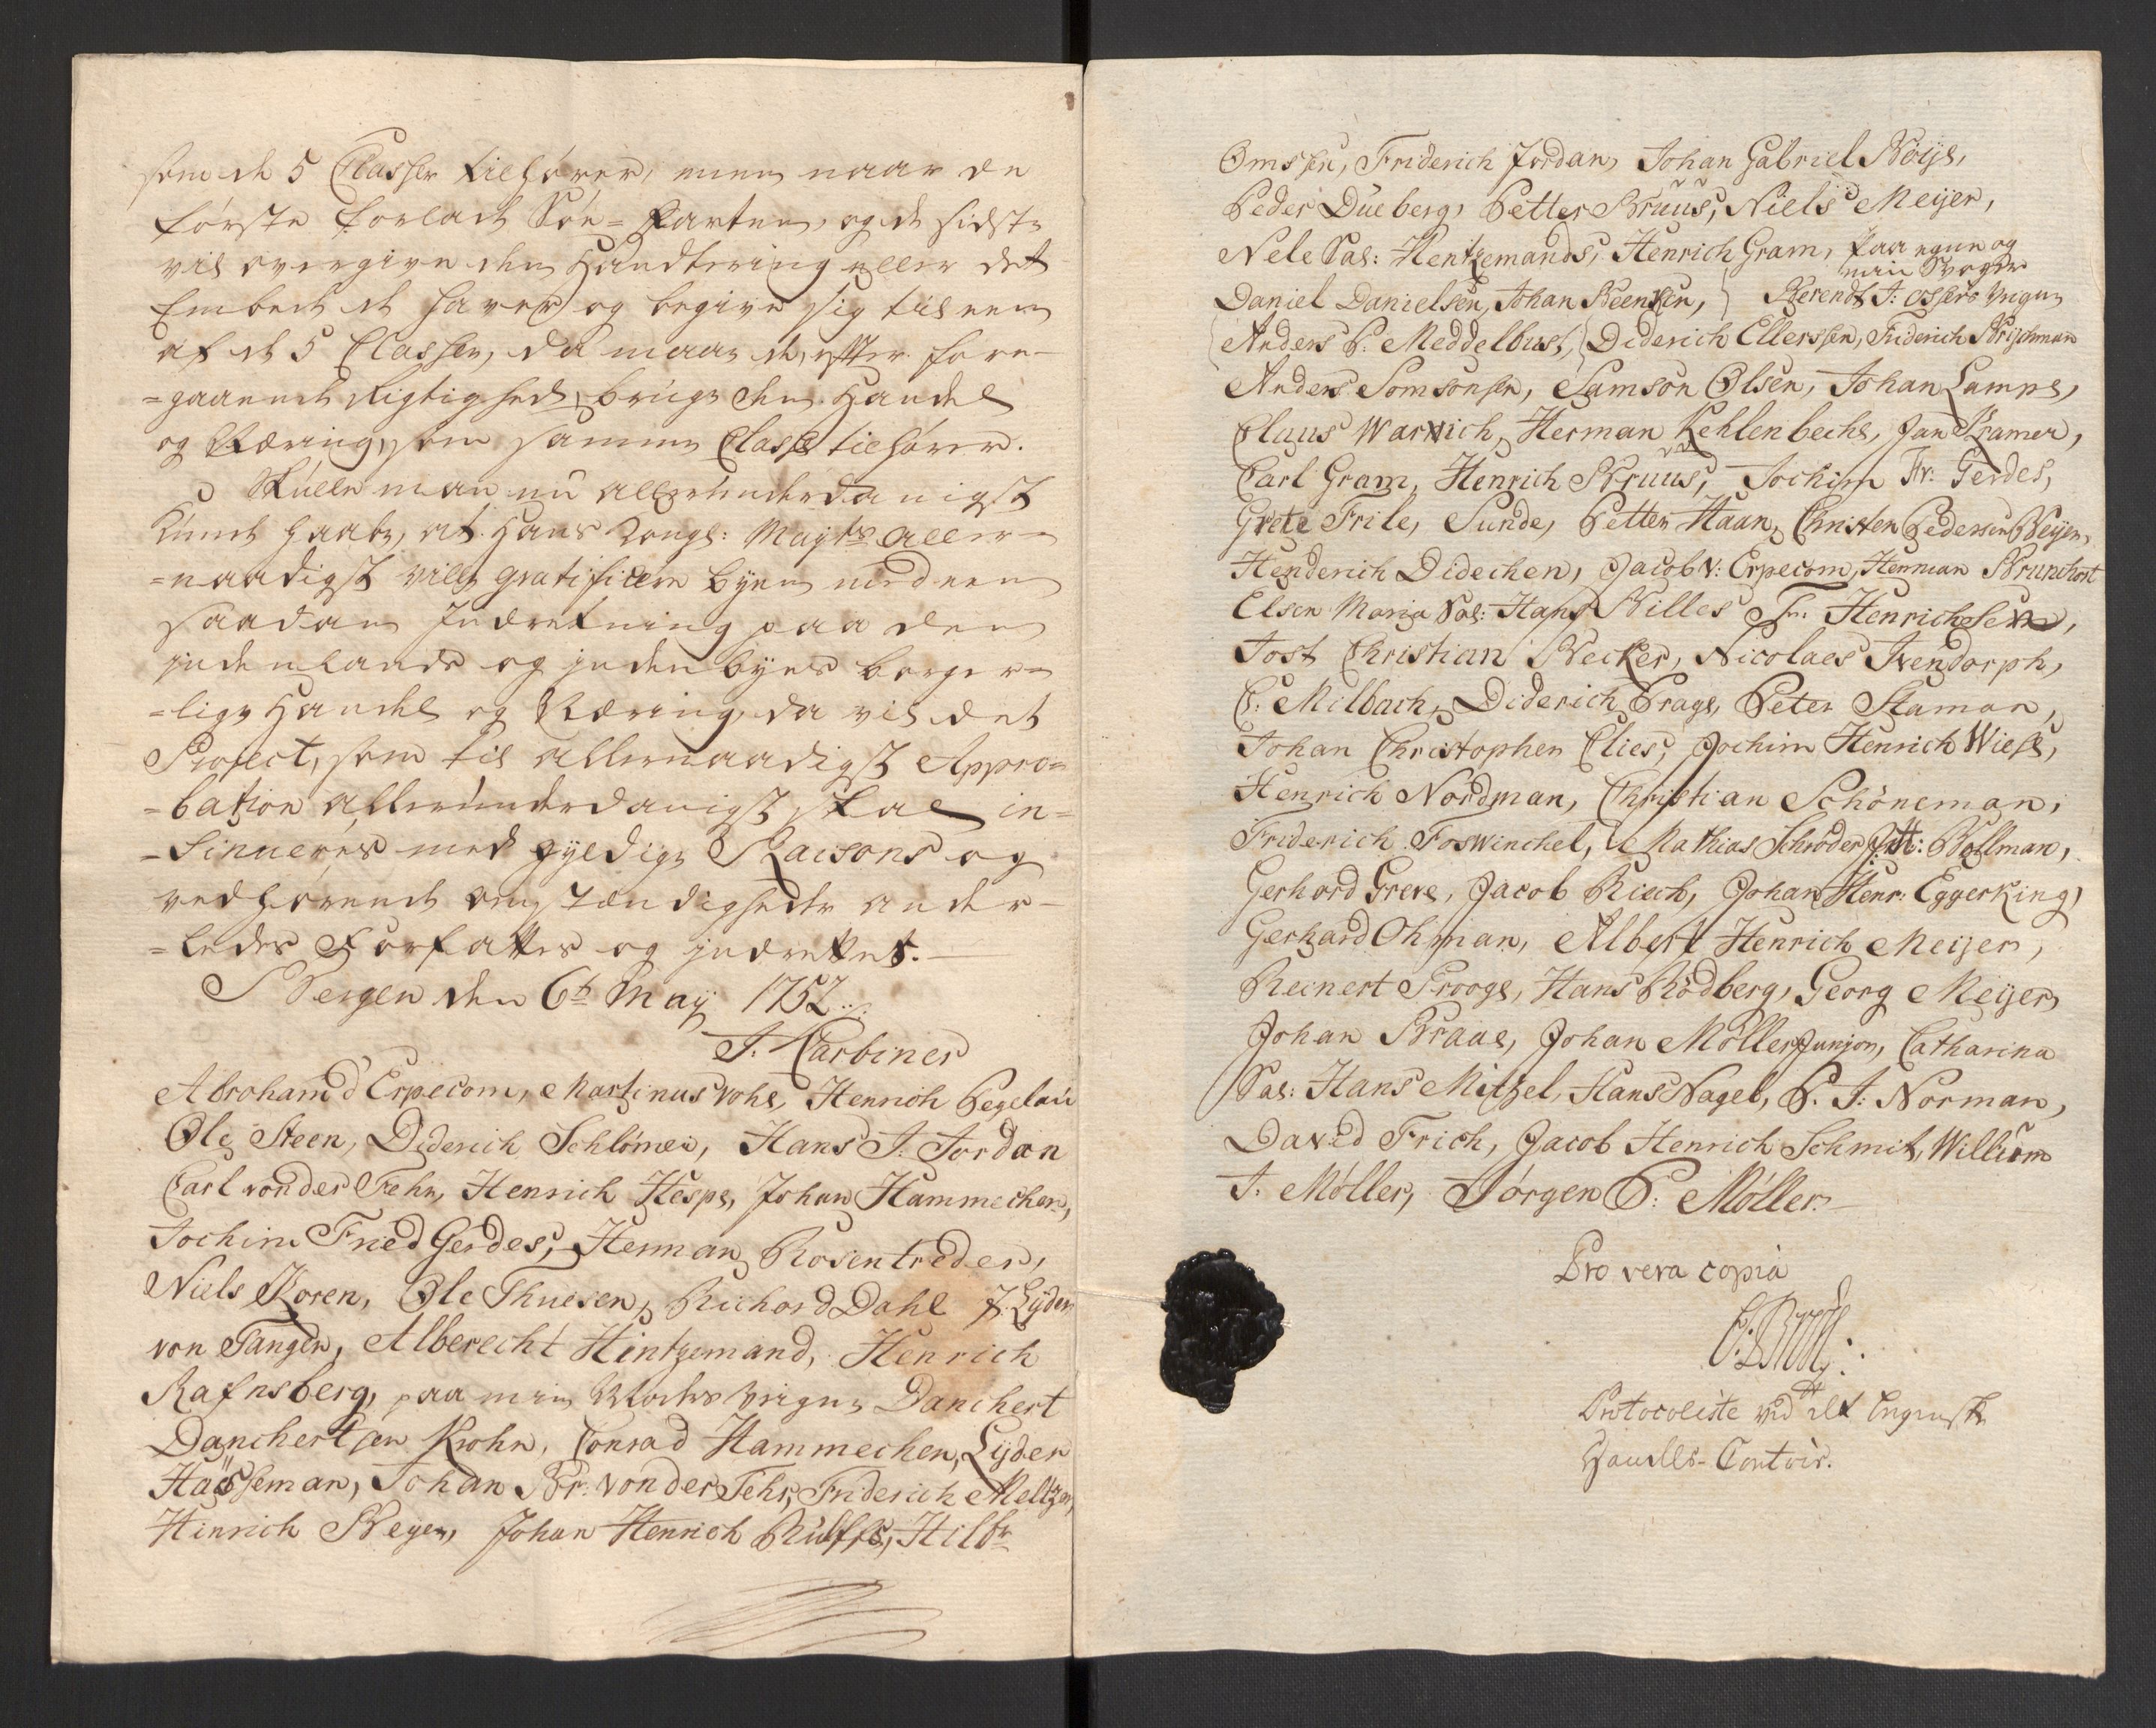 som de 5 Classer tilhører, men naar de
første forlade Søe-Farten, og de sidste
vil overgive den Handtering eller det
Embede de haver og begive sig til een
af de 5 Classer, da maae de, efter fore-
=gaaende Rigtighed, bruge den Handel
og Næring, som samme Classe tilhører.
Skulle man nu allerunderdanigst
kunde haabe, at Hans Kongl: Mayts aller-
=naadigst ville gratificere Byen med een
saadan Indretning paa den
indenlands og inden byes borger-
=lige Handel og Næring, da vil det
Project, som til allernaadigst Appro=
=bation allerunderdanigst skal in=
=sinueres med gyldige Raisons og
vedhørende omstændigheder ander-
=ledes Forfattes og indrettet.
Bergen den 6t May 1752
J. Carbiner
Abraham d' Erpecom, Martinus Vohs, Henrich Pegelau
Ole Steen, Diderich Schlömer, Hans J. Jordan
Carl von der Fehr, Henrich Hespe, Johan Hammechen,
Jochim Fried Gerdes, Herman Rosentreder,
Niels Koren, Ole Thuesen, Richard Dahl J. Lyder
von Tangen, Alberecht Hintzemand, Henrich
Rafnsberg, paa min Moders veigne Danchert
Danchertsen Krohn, Conrad Hammechen, Lyder
Hasseman, Johan Br: von der Fehr, Friderich Meltzer,
Hinrich Beyer, Johan Henrich Rulffs, Hilbr
Omssen, Friderich Jordan, Johan Gabriel Böyse,
Peder Dueberg, Petter Bruus, Niels Meyer,
Nele Sal: Hentzemands, Henrich Gram, paa egne og
min Svoger
Daniel Danielsen, Johan Beenken, Berendt J: Ossers veigne
Anders P. Meddelbus, Diderich Ellerssen, Friderich Krischman
Anders Somsonsen, Samson Olsen, Johan Lampe,
Claus Warnich, Herman Kehlenbech, Jan Kramer,
Carl Gram, Henrich Bruus, Jochim Fr: Gerdes,
Grete Frile, Sunde, Petter Haan, Christen Pedersen Beyer,
Henderich Didechen, Jacob v: Erpecom, Herman Brunchost
Elsen Maria Sal: Hans Billes Fr: Henrichsen,
Jost Christian Becker, Nicolaes Ivendorph,
C: Milbach, Diderich Prage, Peter Staman,
Johan Christopher Clies, Jochim Henrich Wiese,
Henrich Nordman, Christian Schöneman,
Friderich Foswinchel, Mathias Schröder, J: H: Bollman,
Gerhard Greve, Jacob Riech, Johan Henr: Eggerking,
Gerhard Ohman, Albert Henrich Meyer,
Reinert Prooge, Hans Rödberg, Georg Meyer,
Johan Braae, Johan Möller Junjor, Catharina
Sal: Hans Mitzel, Hans Nagel, P. J: Norman,
David Frich, Jacob Henrich Schmit, William
J. Møller, Jørgen P: Møller.
Pro vera copia
Protocoliste ved det
Handels-Contoir.